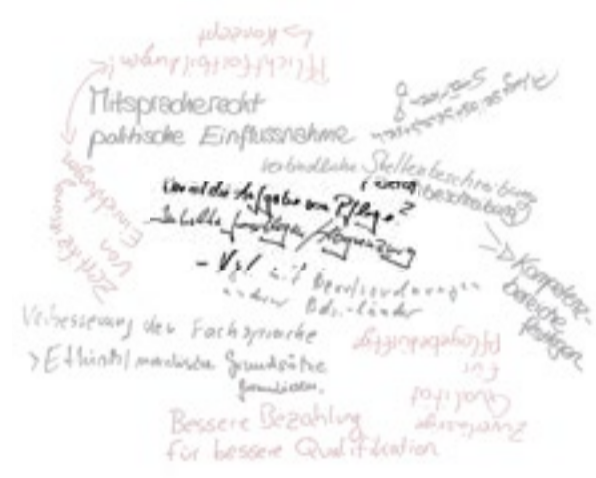 Pflichtfortbildungen
→ Konzept
Mitspracherecht
politische Einflussnahme
verbindliche Stellenbeschreibung
beschreibung
die Aufgabe von Pflege?
Inhalte festlegen / Abgrenzung
- Vgl mit Berufsordnungen
anderer Bundesländer
→ Kompetenz-
bereiche
festlegen
von
Einrichtungen
Verbesserung der Fachsprache
> Ethisch/moralische Grundsätze
formulieren.
Zuverlässige
Qualität
für
Pflegebedürftige
Bessere Bezahlung
für bessere Qualifikation